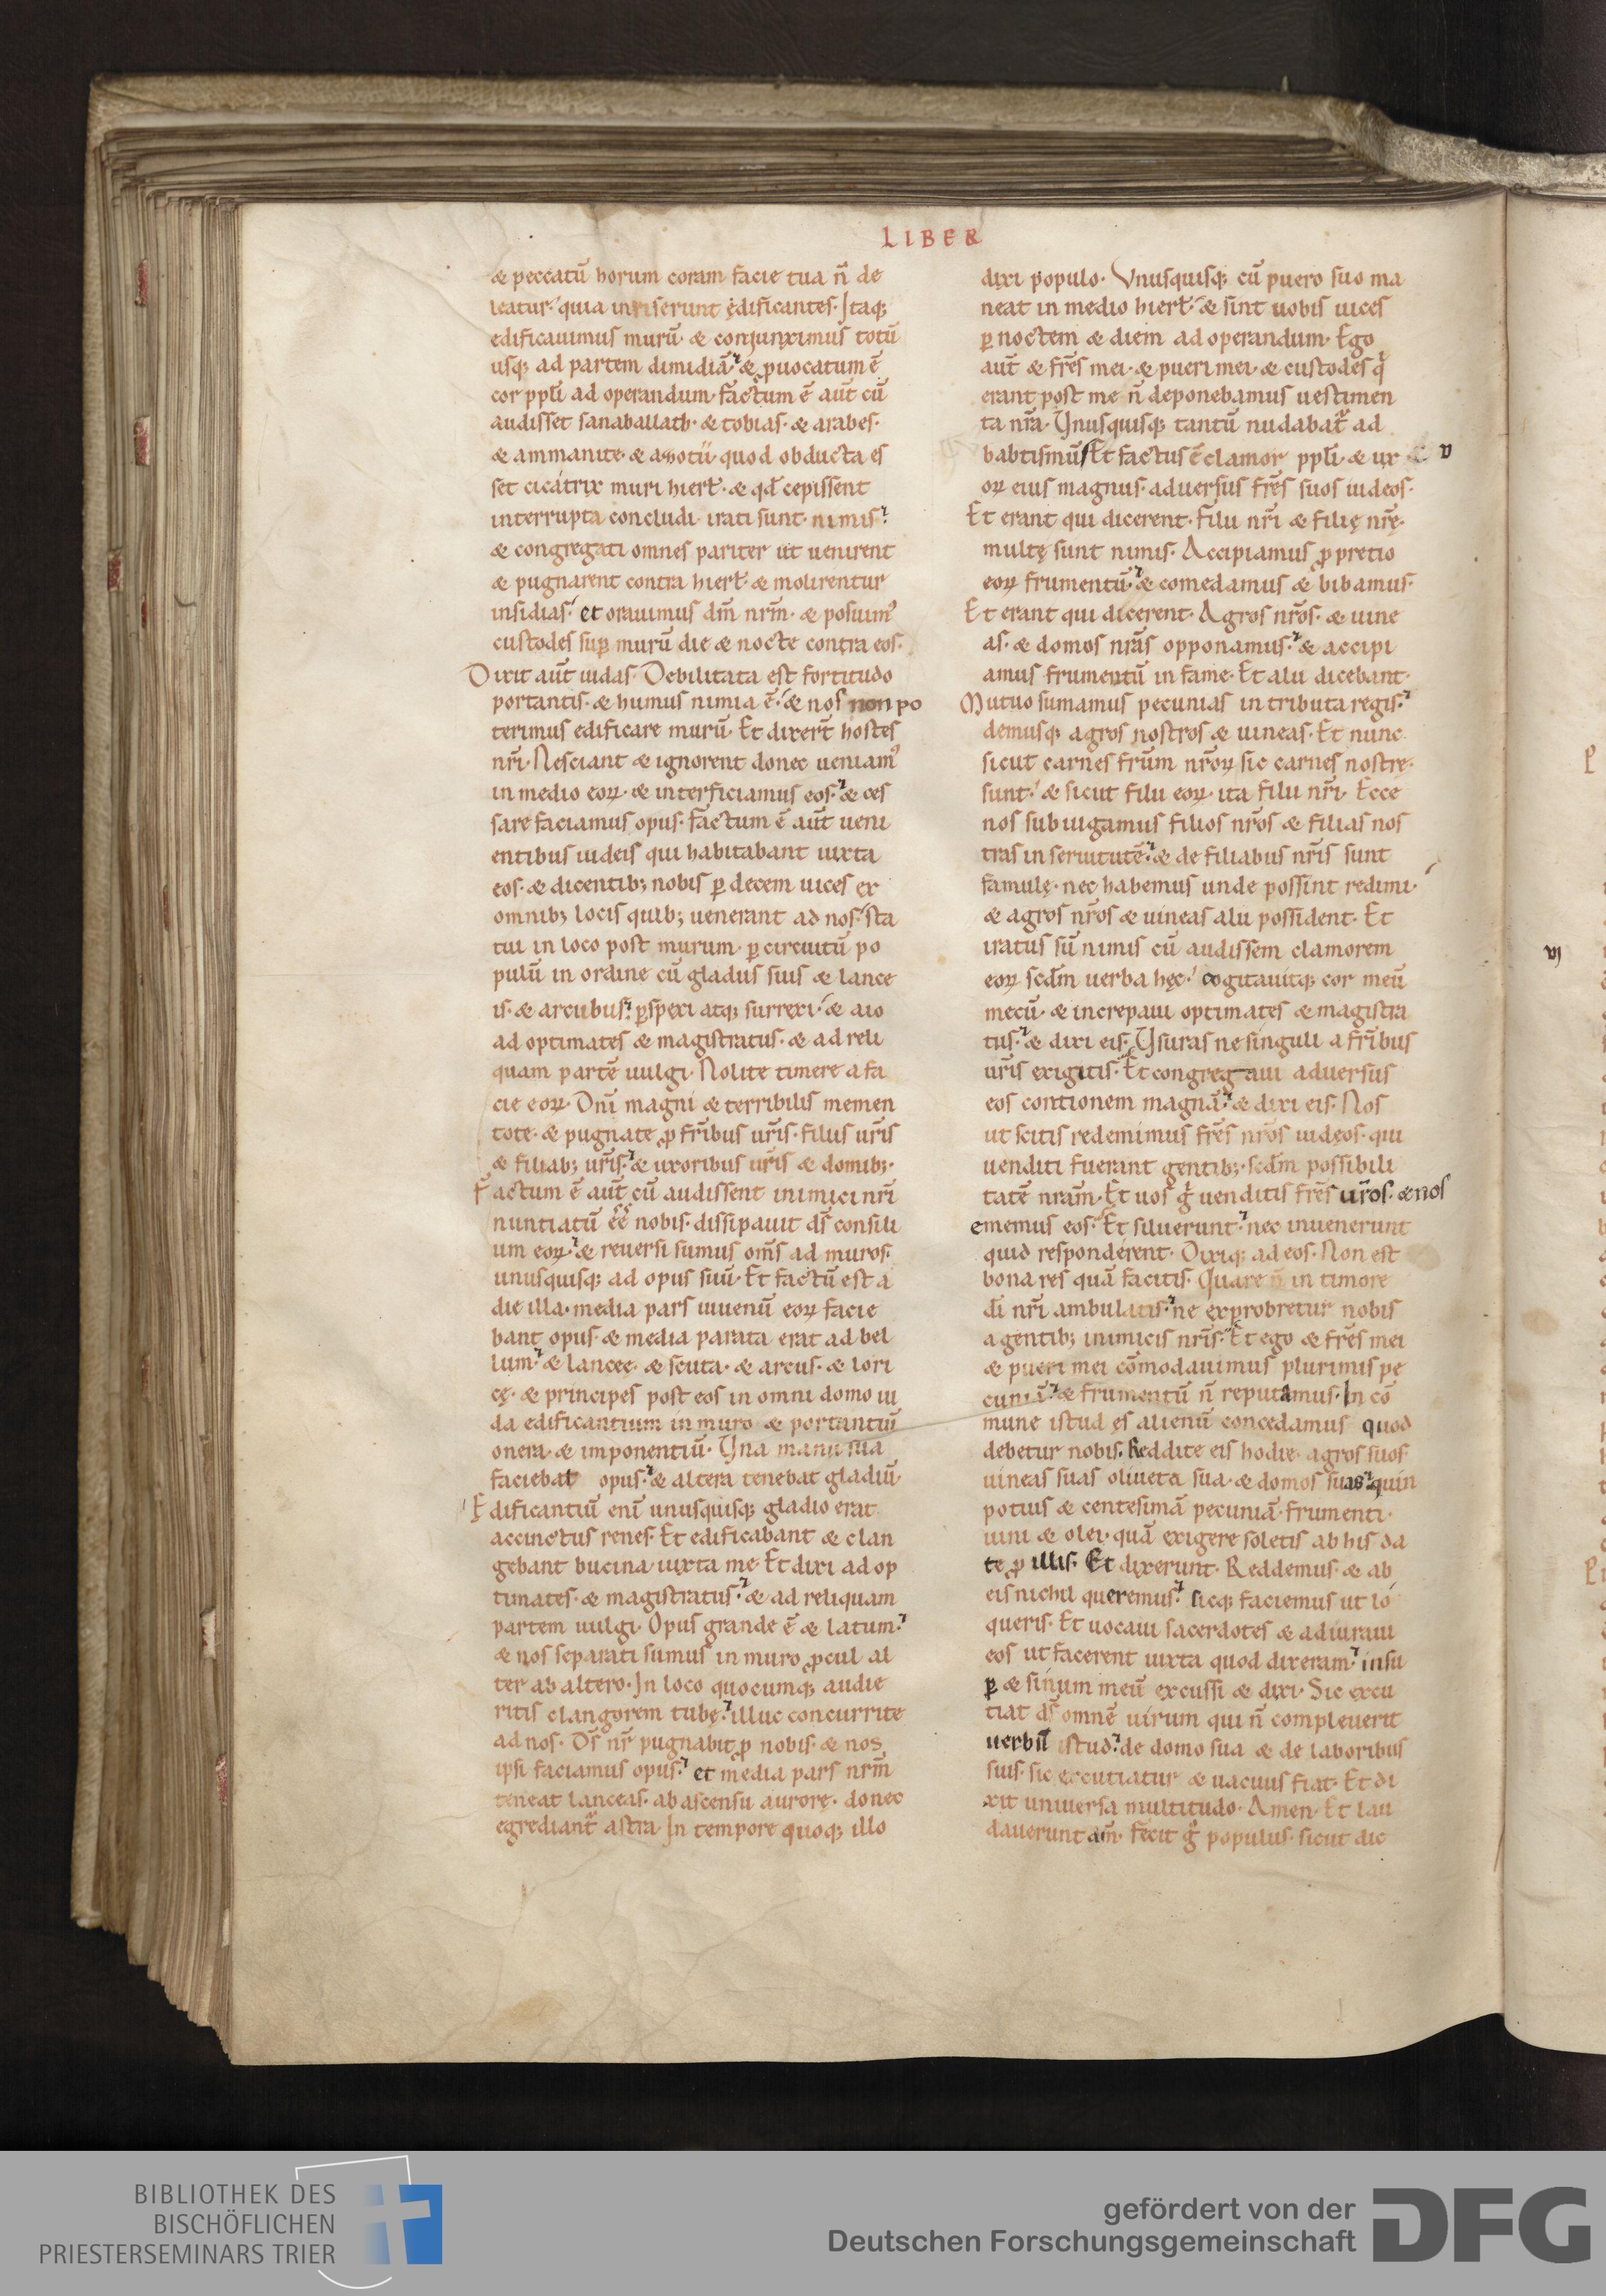 LIBER
& peccatū horum coram facie tua n̄ de
leatur. quia inriserunt ędificantes. Itaq;
edificauimus murū. & coniunximus totū
usq; ad partem dimidiā. & ꝓuocatum ē
cor ppl̄i ad operandum. factum ē aūt cū
audisset sanaballath. & tobias. & arabes.
& ammanitę. & azotii. quod obducta es
set cicatrix muri hierł. & qd̄ cepissent
interrupta concludi. irati sunt nimis.
& congregati omnes pariter ut uenirent
& pugnarent contra hierł. & molirentur
insidias. et orauimus dm̄ nrm̄. & posuim᷒
custodes suꝑ murū die & nocte contra eos.
Dixit aūt iudas. Debilitata est fortitudo
portantis. & humus nimia ē. & nos non po
terimus edificare murū. Et dixerт̄ hostes
nr̄i. Nesciant & ignorent donec ueniam᷒
in medio eoꝝ. & interficiamus eos. & ces
sare faciamus opus. factum ē aūt ueni
entibus iudeis qui habitabant iuxta
eos. & dicentib; nobis ꝑ decem uices ex
omnib; locis quib; uenerant ad nos. sta
tui in loco post murum ꝑ circuitū po
pulū in ordine cū gladiis suis & lance
is. & arcubus. ꝑspexi atq; surrexi. & aio
ad optimates & magistratus. & ad reli
quam partē uulgi. Nolite timere a fa
cie eoꝝ. Dnī magni & terribilis memen
tote. & pugnate ꝓ fr̄ibus ur̄is. filiis ur̄is
& filiab; ur̄is. & uxoribus ur̄is & domib;.
Factum ē aūt cū audissent inimici nr̄i
nuntiatū ēē nobis. dissipauit ds̄ consili
um eoꝝ. & reuersi sumus om̄s ad muros.
unusquisq; ad opus suū. Et factū est a
die illa. media pars iuuenū eoꝝ facie
bant opus. & media parata erat ad bel
lum. & lanceę. & scuta. & arcus. & lori
cę. & principes post eos in omni domo iu
da edificantium in muro & portantiū
onera. & imponentiū. Una manu sua
faciebat opus. & altera tenebat gladiū.
Edificantiū eni unusquisq; gladio erat
accinctus renes. Et edificabant & clan
gebant bucina iuxta me. Et dixi ad op
timates. & magistratus. & ad reliquam
partem uulgi. Opus grande ē & latum.
& nos separati sumus in muro ꝓcul al
ter ab altero. In loco quocumq; audie
ritis clangorem tubę. illuc concurrite
ad nos. Ds̄ nr̄ pugnabit ꝓ nobis. & nos
ipsi faciamus opus. et media pars nrm̄
teneat lanceas. ab ascensu aurorę. donec
egrediant᷑ astra. In tempore quoq; illo
dixi populo. Unusquisq; cū puero suo ma
neat in medio hierł. & sint uobis uices
ꝑ noctem & diem ad operandum. Ego
aūt & fr̄es mei. & pueri mei. & custodes q
erant post me n̄ deponebamus uestimen
ta nr̄a. Unusquisq; tantū nudabat᷑ ad
babtismū. Et factus ē clamor ppl̄i. & ux
v
oꝝ eius magnus. aduersus fr̄es suos iudeos.
Et erant qui dicerent. filii nr̄i & filię nr̄ę.
multę sunt nimis. Accipiamus ꝓ pretio
eoꝝ frumentū. & comedamus & bibamus.
Et erant qui dicerent. Agros nr̄os. & uine
as. & domos nr̄as opponamus. & accipi
amus frumentū in fame. Et alii dicebant.
Mutuo sumamus pecunias in tributa regis.
demusq; agros nostros & uineas. Et nunc
sicut carnes frūm nr̄oꝝ sic carnes nostrę.
sunt. & sicut filii eoꝝ. ita filii nr̄i. Ecce
nos subiugamus filios nr̄os & filias nos
tras in seruitutē. & de filiabus nr̄is sunt
famulę. nec habemus unde possint redimi.
& agros nr̄os & uineas alii possident. Et
iratus sū nimis cū audissem clamorem
eoꝝ scdm̄ uerba hęc. cogitauitq; cor meū
mecū. & increpaui optimates & magistra
tus. & dixi eis. Usuras ne singuli a fr̄ibus
ur̄is exigitis. Et congregaui aduersus
eos contionem magnā. & dixi eis. Nos
ut scitis redemimus fr̄es nr̄os iudęos. qui
uenditi fuerant gentib;. scdm̄ possibili
tatē nram̄. Et uos g uenditis fr̄es ur̄os. & nos
ememus eos. Et siluerunt. nec inuenerunt
quid responderent. Dixiq; ad eos. Non est
bona res quā facitis. Quare n̄ in timore
di nr̄i ambulatis. ne exprobretur nobis
a gentib; inimicis nr̄is. Et ego & fr̄es mei
& pueri mei cōmodauimus plurimis pe
cuniā. & frumentū n̄ reputamus. In cō
mune istud ęs alienū concedamus quod
debetur nobis. Reddite eis hodie agros suos
uineas suas oliueta sua. & domos suas. quin
potius & centesimā pecuniā. frumenti.
uini & olei. quā exigere soletis ab his da
te ꝓ illis. Et dixerunt. Reddemus. & ab
eis nichil queremus. sicq; faciemus ut lo
queris. Et uocaui sacerdotes & adiuraui
eos ut facerent iuxta quod dixeram. insu
ꝑ & sinum meū excussi & dixi. Sic excu
tiat ds̄ omnē uirum qui n̄ compleuerit
uerbū istud. de domo sua & de laboribus
suis. sic excutiatur & uacuus fiat. Et di
xit uniuersa multitudo. Amen. Et lau
dauerunt dm̄. Fecit g populus. sicut dic
vi
BIBLIOTHEK DES
BISCHÖFLICHEN
PRIESTERSEMINARS TRIER
gefördert von der
Deutschen Forschungsgemeinschaft
DFG